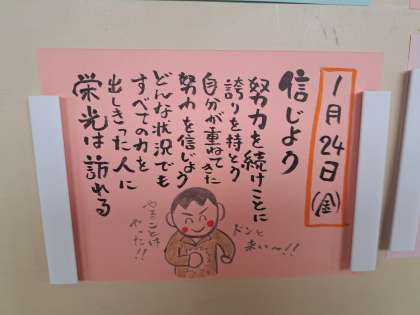 1月24日(金)
信じよう
努力を続けことに
誇りを持とう
自分が重ねてきた
努力を信じよう
どんな状況でも
すべての力を
出しきった人に
栄光は訪れる
ドンと
来い〜!!
やることは
やった!!